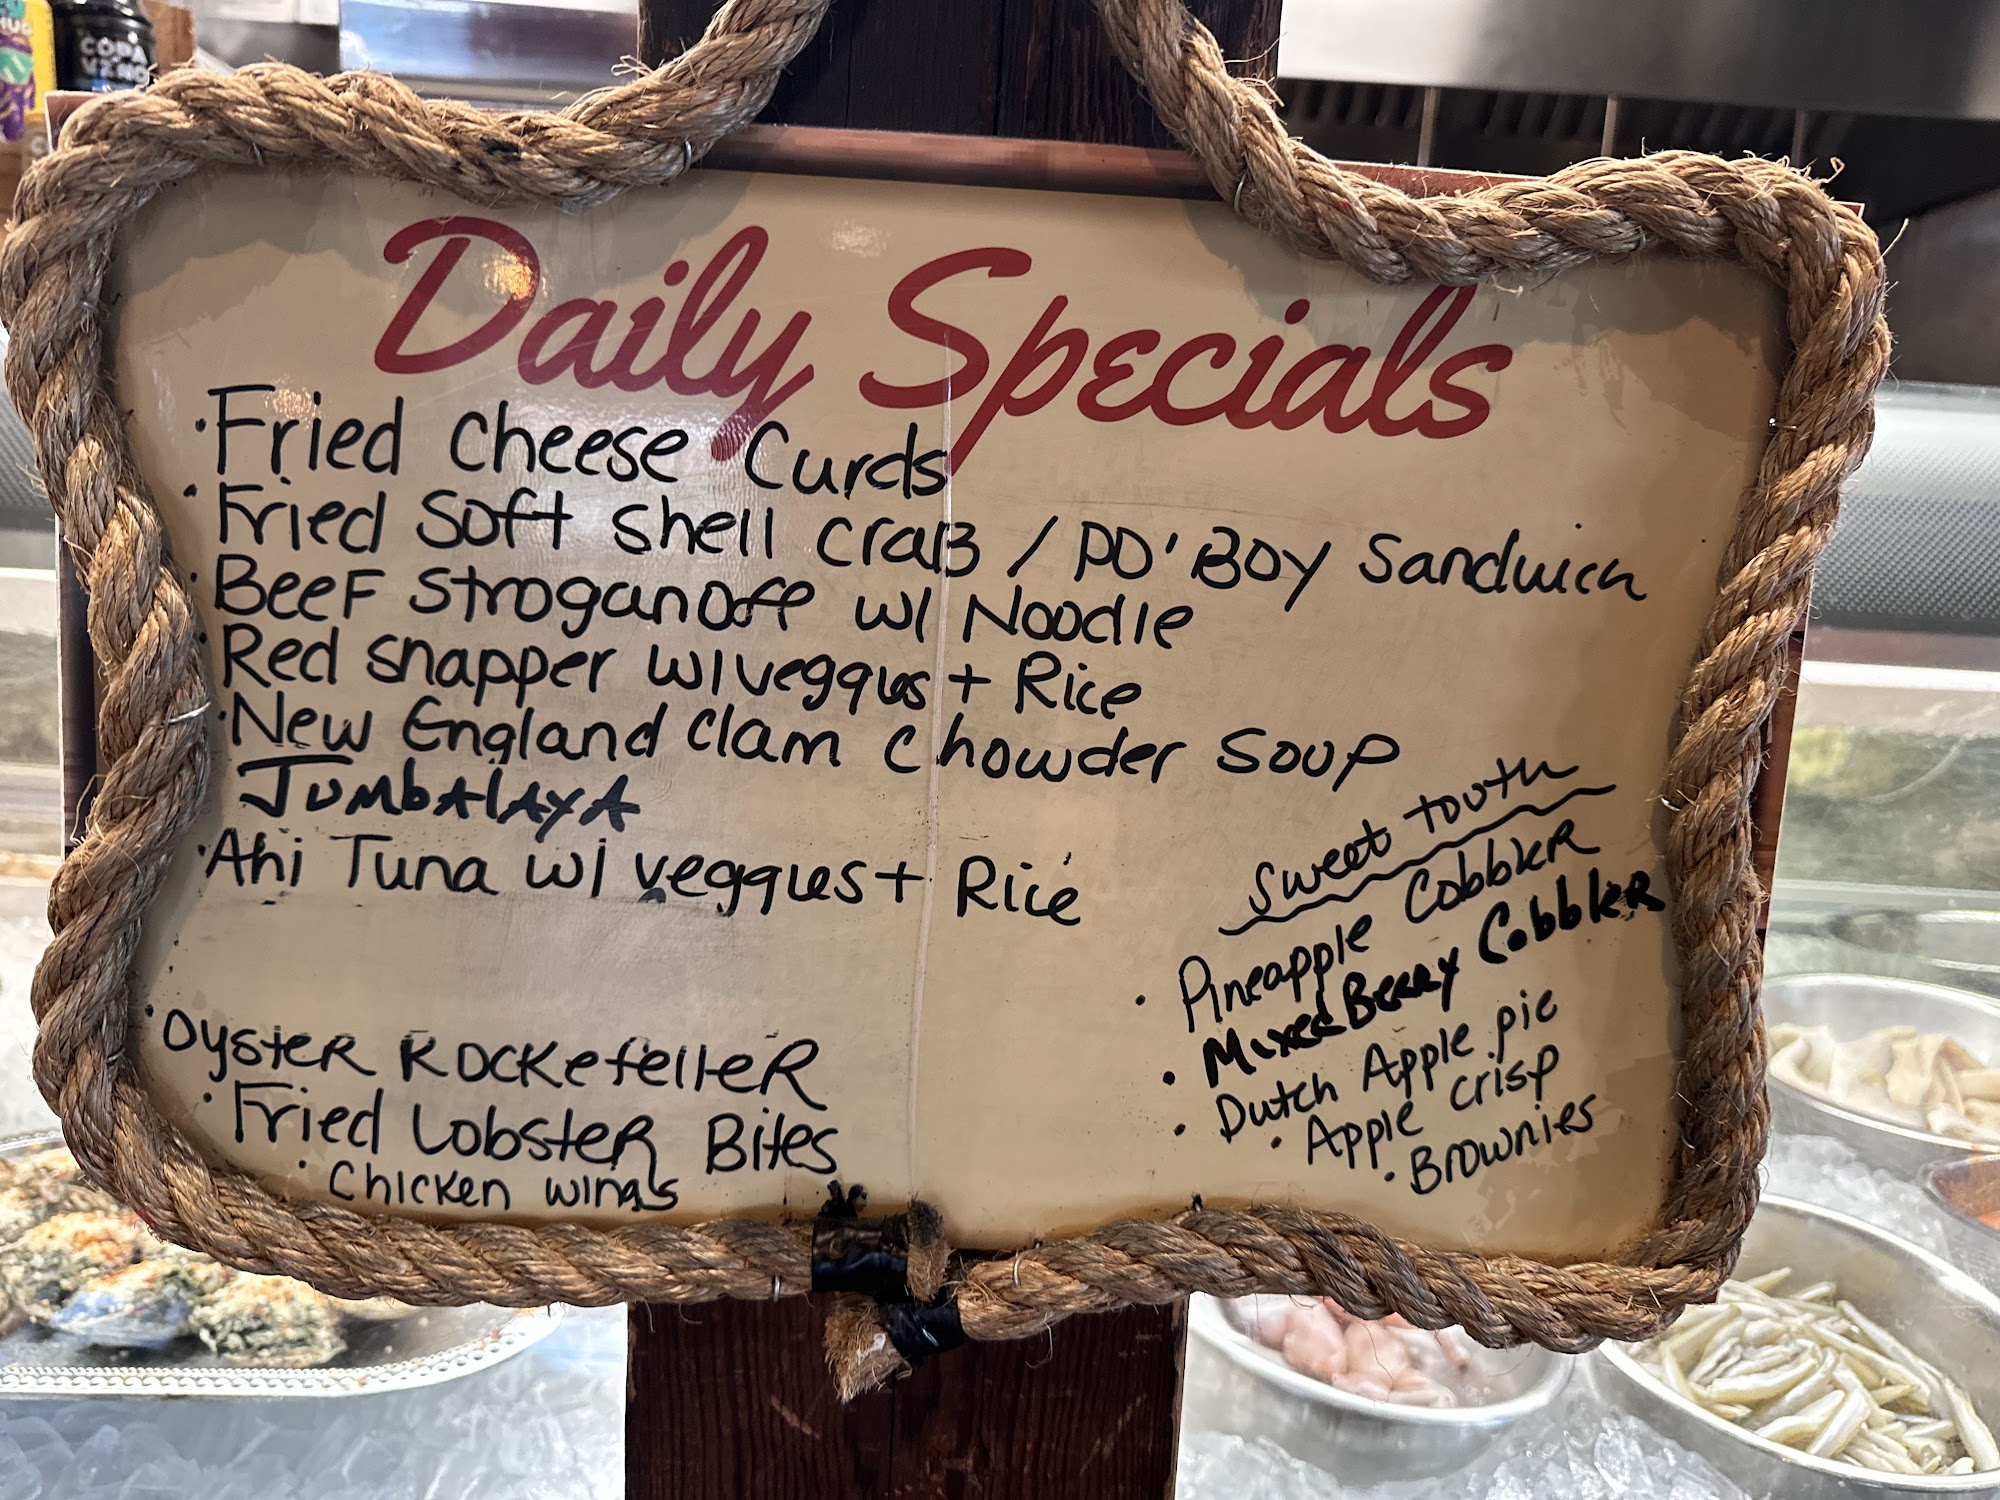 COPA
VINO
Daily Specials
· Fried Cheese Curds
· Fried Soft Shell CraB / PO'BOY Sandwich
· BeeF Stroganoff w/ Noodle
· Red Snapper w/veggies + Rice
· New England Clam Chowder Soup
JUMbAlAyA
· Ahi Tuna w/ veggies + Rice
· OysteR ROCKefelleR
· Fried LobsteR Bites
· Chicken wings
Sweet tooth
· Pineapple CobbleR
· Mixed Berry CobbleR
· Dutch Apple pie
· Apple crisp
· Brownies